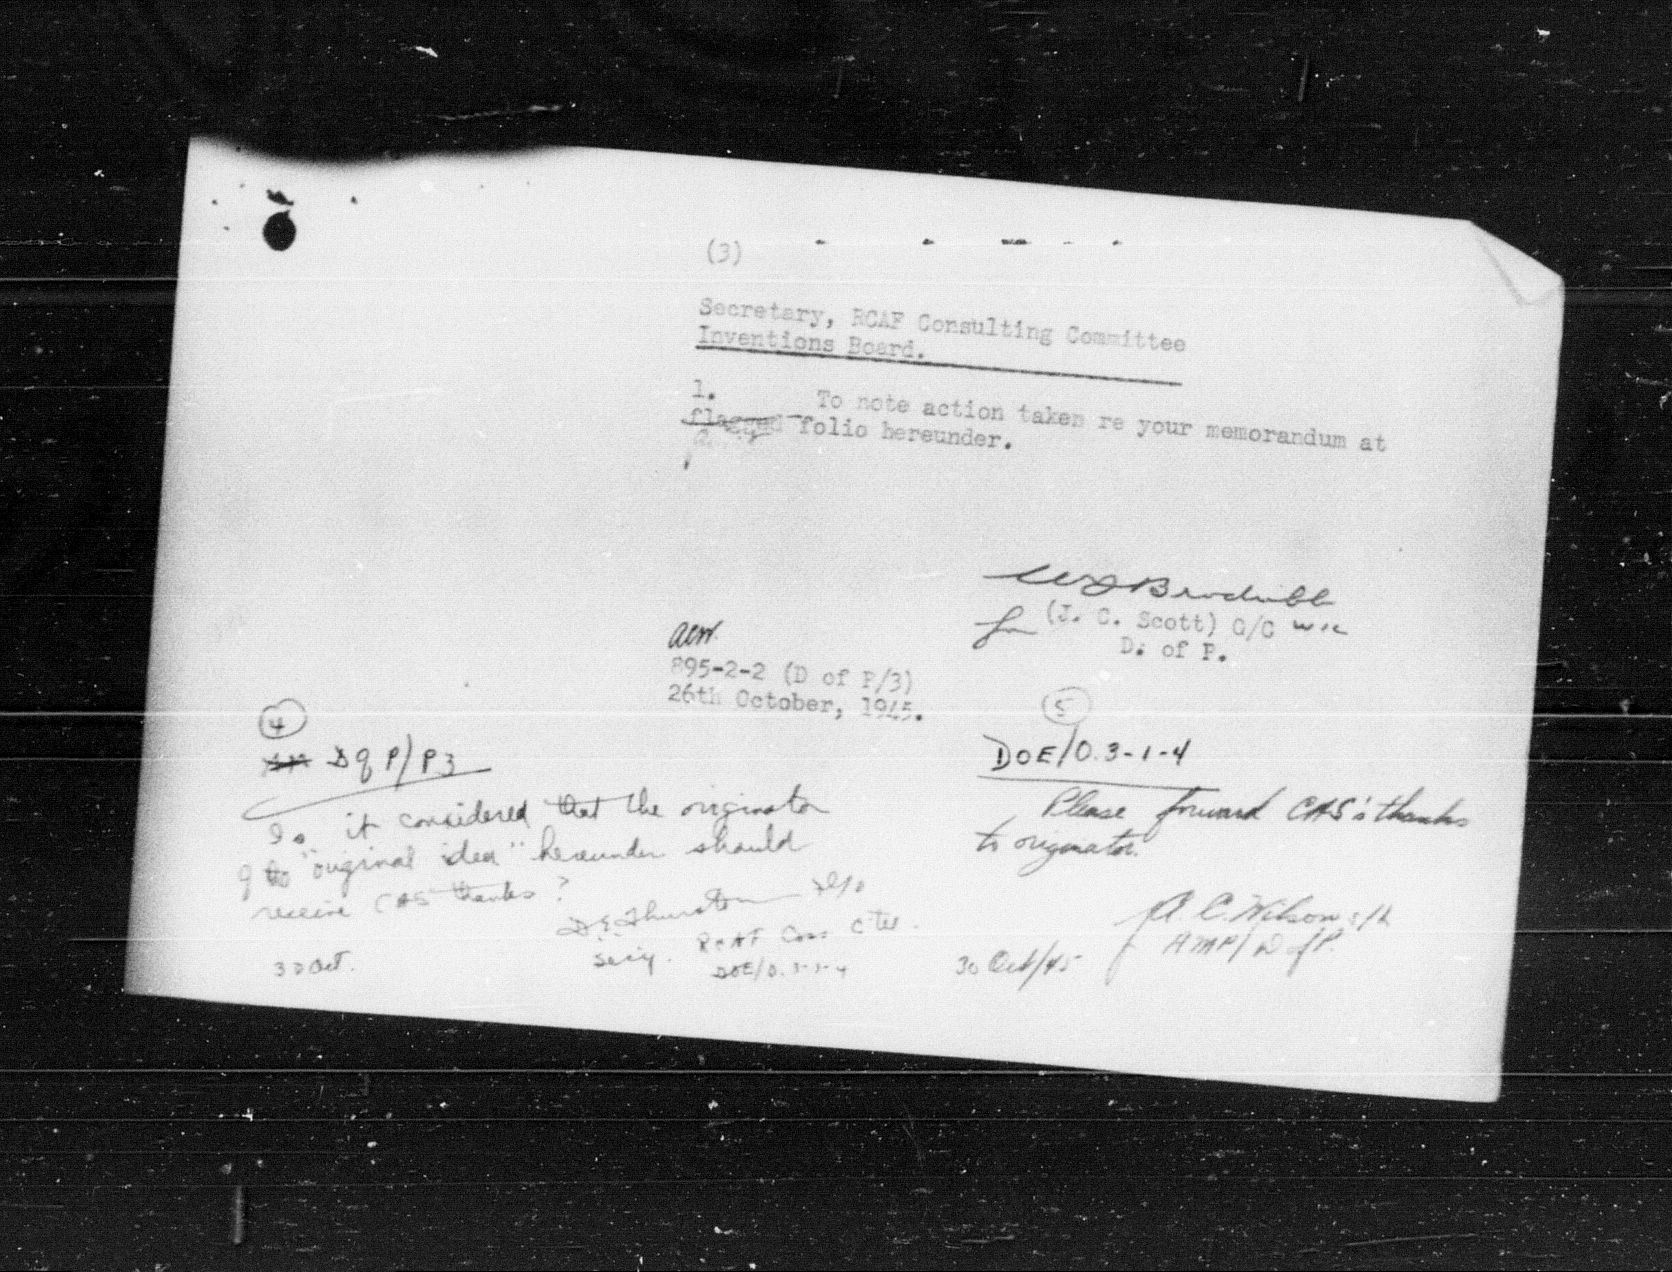 (3)
Secretary, RCAF Consulting Committee
Inventions Board.
1. To note action taken re your memorandum at
flagged folio hereunder.
for (J. C. Scott) G/C
D. of P.
895-2-2 (D of P/3)
26th October, 1945.
4
D of P/P3
Is it considered that the originator
of "original idea" hereunder should
receive CAS thanks?
D.E. Thurston
Secy. RCAF Cons C'tee.
DOE/O.3-1-4
30 Oct.
5
DOE/O.3-1-4
Please forward CAS's thanks
to originator.
A. C. Wilson S/L
D of P.
30 Oct/45